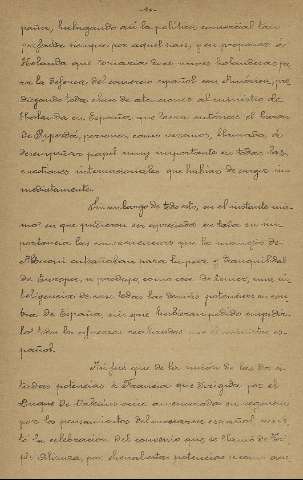 paña, halagando así la política comercial tan
preferida siempre por aquel país, y en proponer á
Holanda que tomaria diez naves holandesas pa
ra la defensa del comercio español con América, pro
digando toda clase de atenciones al ministro de
Holanda en España, que lo era entonces el baron
de Riperdá, persona, como veremos, llamada á
desempeñar papel muy importante en todas las
cuestiones internacionales que habian de surgir in
mediatamente.
Sin embargo de todo esto, en el instante mis
mo en que pudieron ser apreciados en toda su im
portancia las que los manejos de
Alberoni entrañaban para la paz y tranquilidad
de Europa, se produjo, como era de temer, una in
teligencia de casi todas las demás potencias en con
tra de España, sin que hubieran podido impedir
lo todos los esfuerzos realizados por el ministro es
pañol.
Así fué que de la union de las dos ci
tadas potencias á Francia que dirigida por el
Duque de Orleans
por los pensamientos del español
tó la celebracion del convenio que se llamó de Tri
ple Alianza, por dichas tres potencias y como